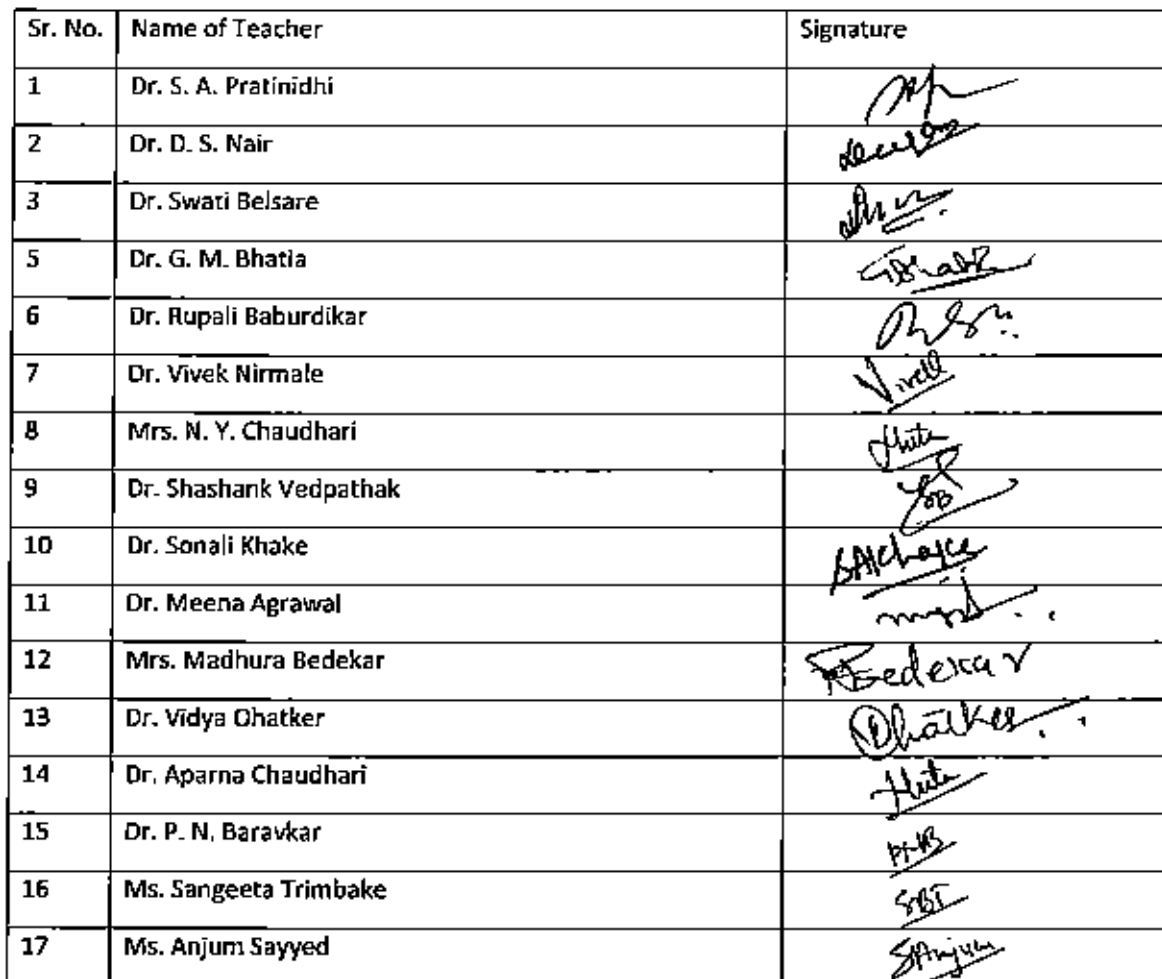 Sr. No. Name of Teacher Signature
1 Dr. S. A. Pratinidhi
2 Dr. D. S. Nair
3 Dr. Swati Belsare
5 Dr. G. M. Bhatia
6 Dr. Rupali Baburdikar
7 Dr. Vivek Nirmale
8 Mrs. N. Y. Chaudhari
9 Dr. Shashank Vedpathak
10 Dr. Sonali Khake
11 Dr. Meena Agrawal
12 Mrs. Madhura Bedekar Bedekar
13 Dr. Vidya Ohatker
14 Dr. Aparna Chaudhari
15 Dr. P. N. Baravkar PNB
16 Ms. Sangeeta Trimbake SBT
17 Ms. Anjum Sayyed SAnjum